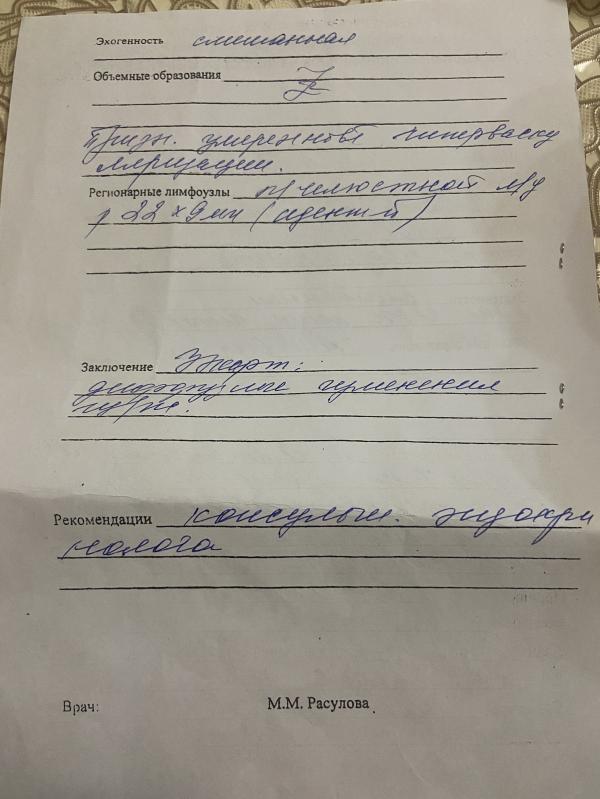 Эхогенность смешанная
Объемные образования
Призн. умеренной гиперваску
ляризации.
Регионарные лимфоузлы п/челюстной л/у
р 22 х 9 мм
Заключение Эхокарт:
диффузные изменения
щ/ж.
Рекомендации консульт. эндокри
нолога
Врач: М.М. Расулова